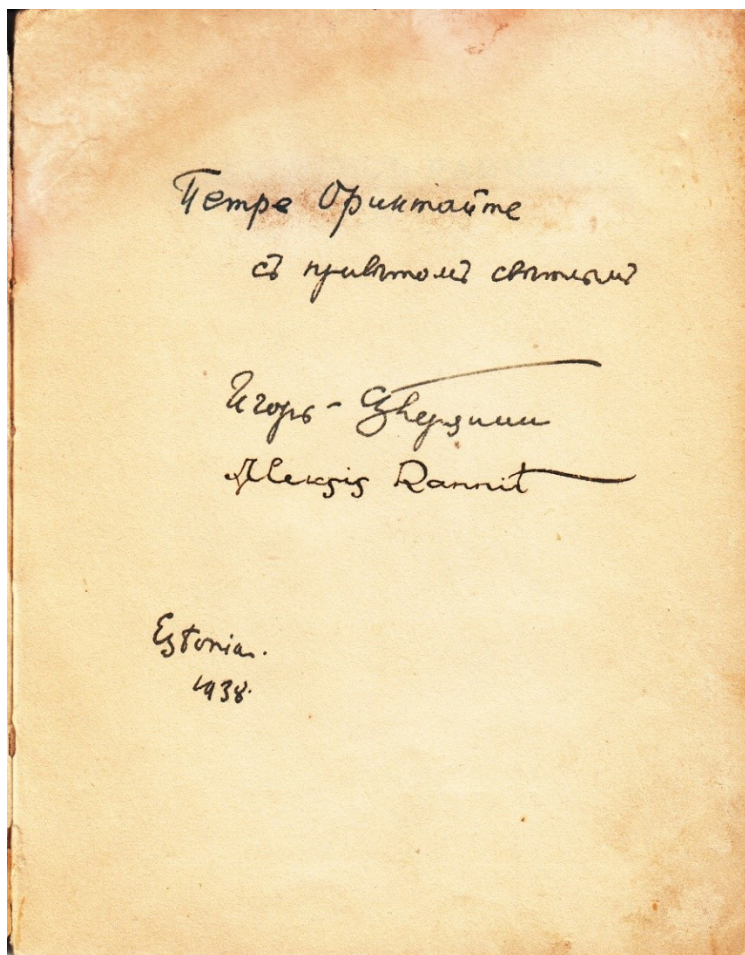 Петре Оринтайте
съ привѣтомъ свѣтлымъ
Игорь-Сѣверянин
Aleksis Rannit
Estonia.
1938.